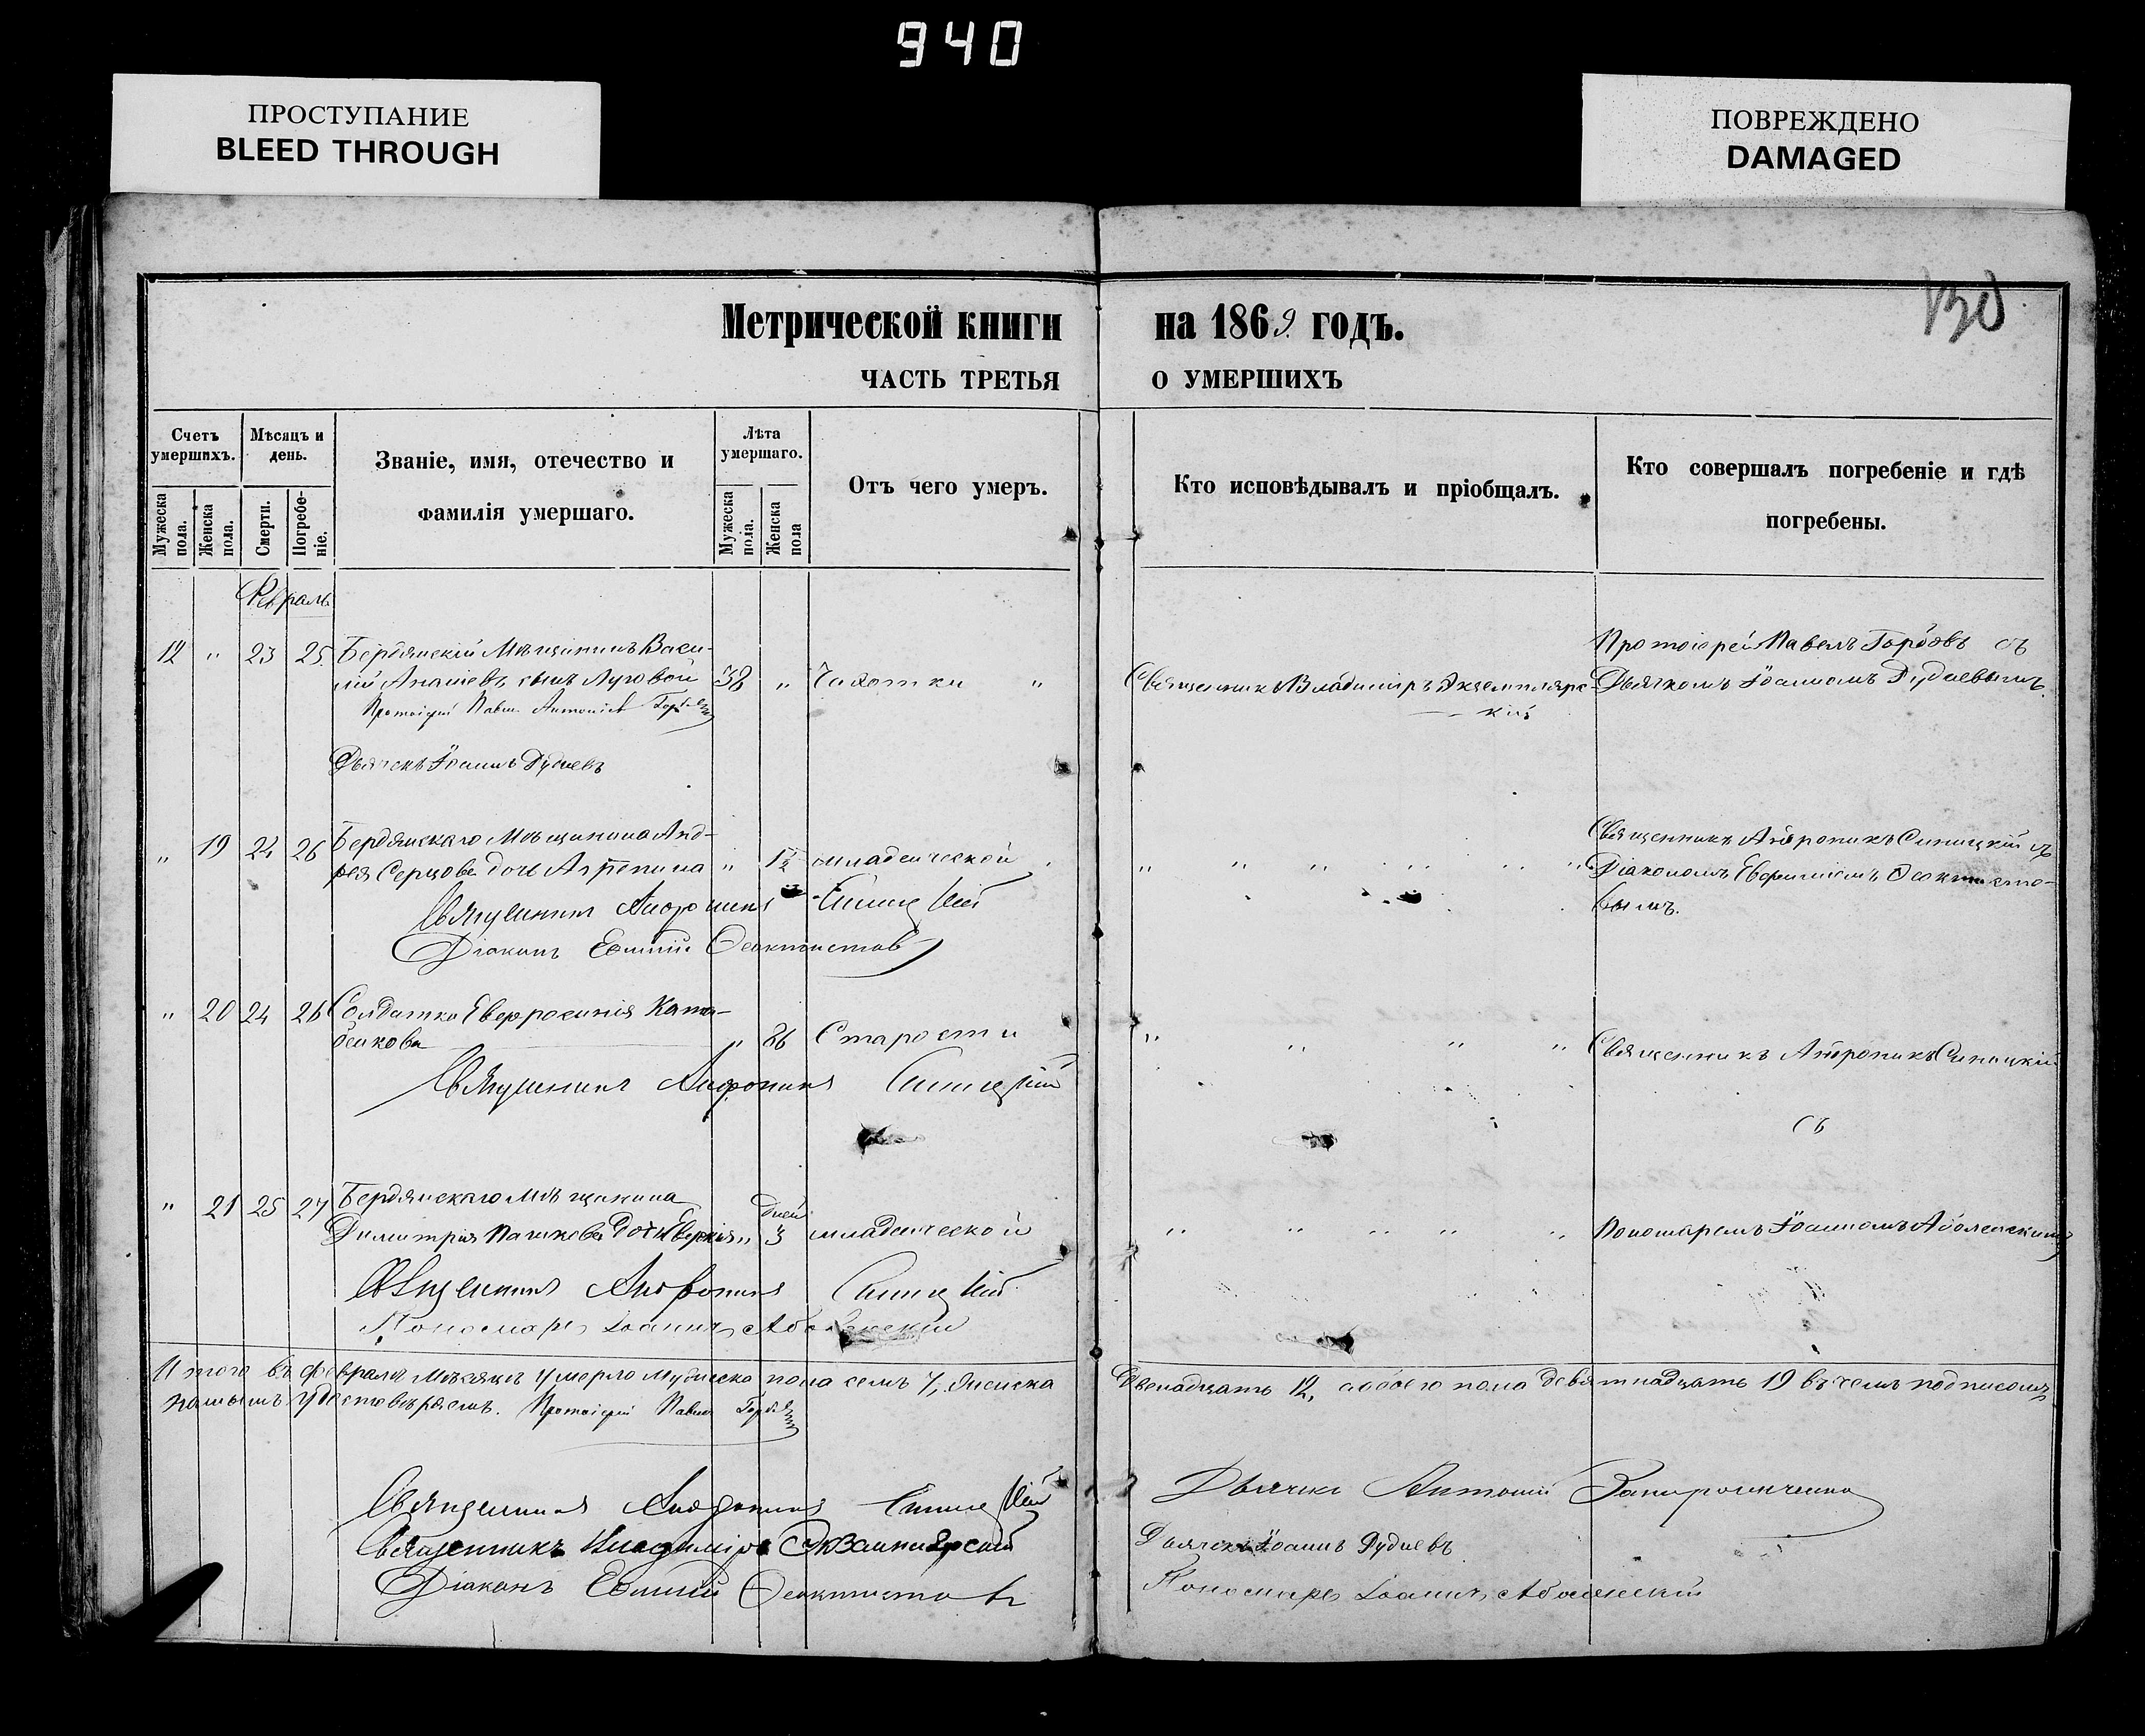 940
ПРОСТУПАНИЕ
BLEED THROUGH
ПОВРЕЖДЕНО
DAMAGED
130
Метрической книги на 1869 годъ.
ЧАСТЬ ТРЕТЬЯ О УМЕРШИХЪ
Счетъ умершихъ.
Мѣсяцъ и день.
Званіе, имя, отечество и фамилія умершаго.
Лѣта умершаго.
Отъ чего умеръ.
Кто исповѣдывалъ и пріобщалъ.
Кто совершалъ погребеніе и гдѣ погребены.
Мужеска пола.
Женска пола.
Смерти.
Погребеніе.
Мужеска пола.
Женска пола
Февраль
12 " 23 25 Бердянскій Мѣщанинъ Васи-
лій Ананіевъ сынъ Луговой 38 " Чахотки "
Священникъ Владиміръ Экземпляр-
скій
Протоіерей Павелъ Горбовъ съ
Дьячкомъ Іоанномъ Дудиевымъ.
Протоіерей Павелъ
Дьячекъ Іоаннъ Дудиевъ
" 19 24 26 Бердянскаго Мѣщанина Анд-
рея Серцова дочь Агрепина " 1½ младенческой
Священникъ Андроникъ Синицкій съ
Діакономъ Евфиміемъ Феоктисто-
вымъ.
Священникъ Андроникъ Синицкій
Діаконъ Евфимій Феоктистовъ
" 20 24 26 Солдатка Евфросинія
" 86 Старости
Священникъ Андроникъ Синицкій
съ
Священникъ Андроникъ Синицкій
" 21 25 27 Бердянскаго Мѣщанина
Дней
Димитрія Пашкова дочь " 3 младенческой
Пономаремъ Іоанномъ Аболенскимъ
Священникъ Андроникъ Синицкій
Пономарь Іоаннъ Аболенскій
Итого въ февралѣ мѣсяцѣ умерло мужеска пола семь 7, женска двенадцать 12, обоего пола девятнадцать 19 въ чемъ подписомъ
нашимъ удостовѣряемъ. Протоіерей Павелъ
Священникъ Андроникъ Синицкій
Священникъ Владиміръ Экземплярскій
Діаконъ Евфимій Феоктистовъ
Дьячекъ Антоній
Дьячекъ Іоаннъ Дудиевъ
Пономарь Іоаннъ Аболенскій